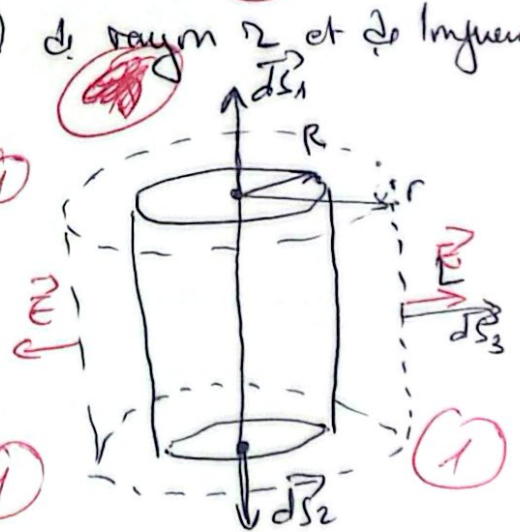 ) de rayon r et de longueu
dS₁
R
1
r
E
E
L
dS₃
1
1
dS₂